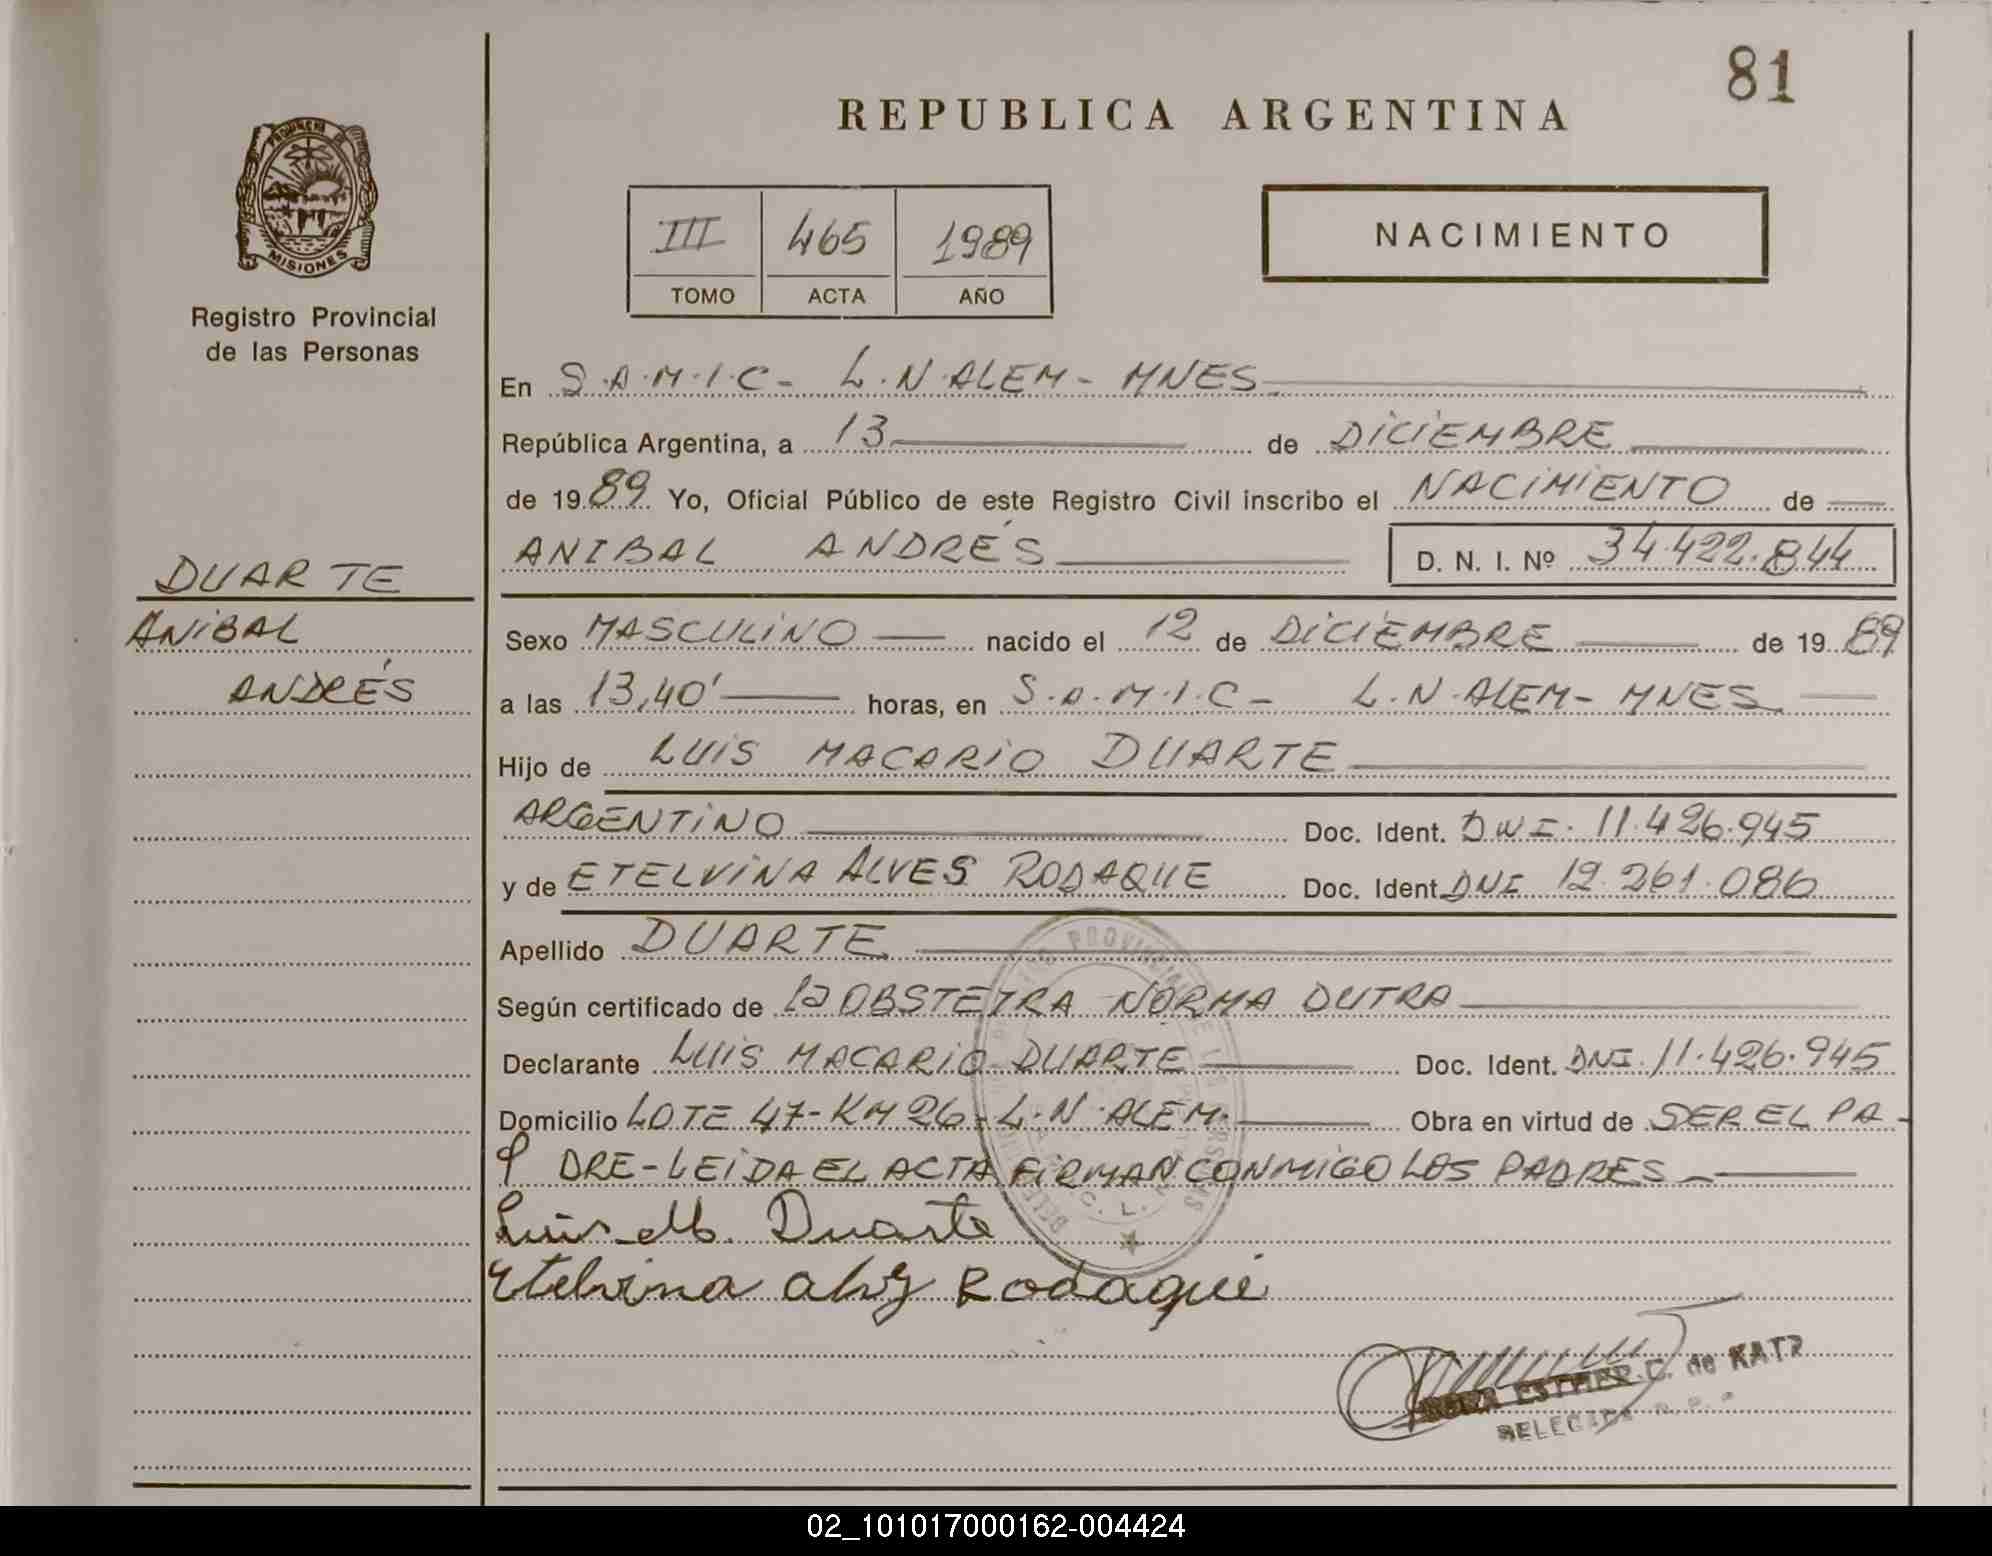 81
REPUBLICA ARGENTINA
PROVINCIA DE
MISIONES
Registro Provincial
de las Personas
III 465 1989
TOMO ACTA AÑO
NACIMIENTO
En S.A.M.I.C- L.N.ALEM- MNES
República Argentina, a 13 de DICIEMBRE
de 1989 Yo, Oficial Público de este Registro Civil inscribo el NACIMIENTO de
ANIBAL ANDRÉS D. N. I. Nº 34.422.844
DUARTE
ANIBAL
ANDRÉS
Sexo MASCULINO nacido el 12 de DICIEMBRE de 1989
a las 13,40' horas, en S.A.M.I.C- L.N.ALEM- MNES
Hijo de LUIS MACARIO DUARTE
ARGENTINO Doc. Ident. DNI. 11.426.945
y de ETELVINA ALVES RODAQUE Doc. Ident. DNI 12.261.086
Apellido DUARTE
Según certificado de la OBSTETRA NORMA DUTRA
Declarante LUIS MACARIO DUARTE Doc. Ident. DNI. 11.426.945
Domicilio LOTE 47-KM 26-L.N.ALEM. Obra en virtud de SER EL PA-
DRE-LEIDA EL ACTA FIRMAN CONMIGO LOS PADRES-
Luis M. Duarte
Etelvina alvz Rodaque
ESTHER C. de KATZ
02_101017000162-004424